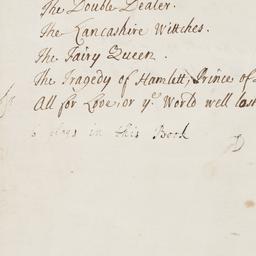 The Double Dealer.
The Lancashire Wittches.
The Fairy Queen.
The Tragedy of Hamlett, Prince of
All for Love, or yᵉ World well lost
6 plays in this Book